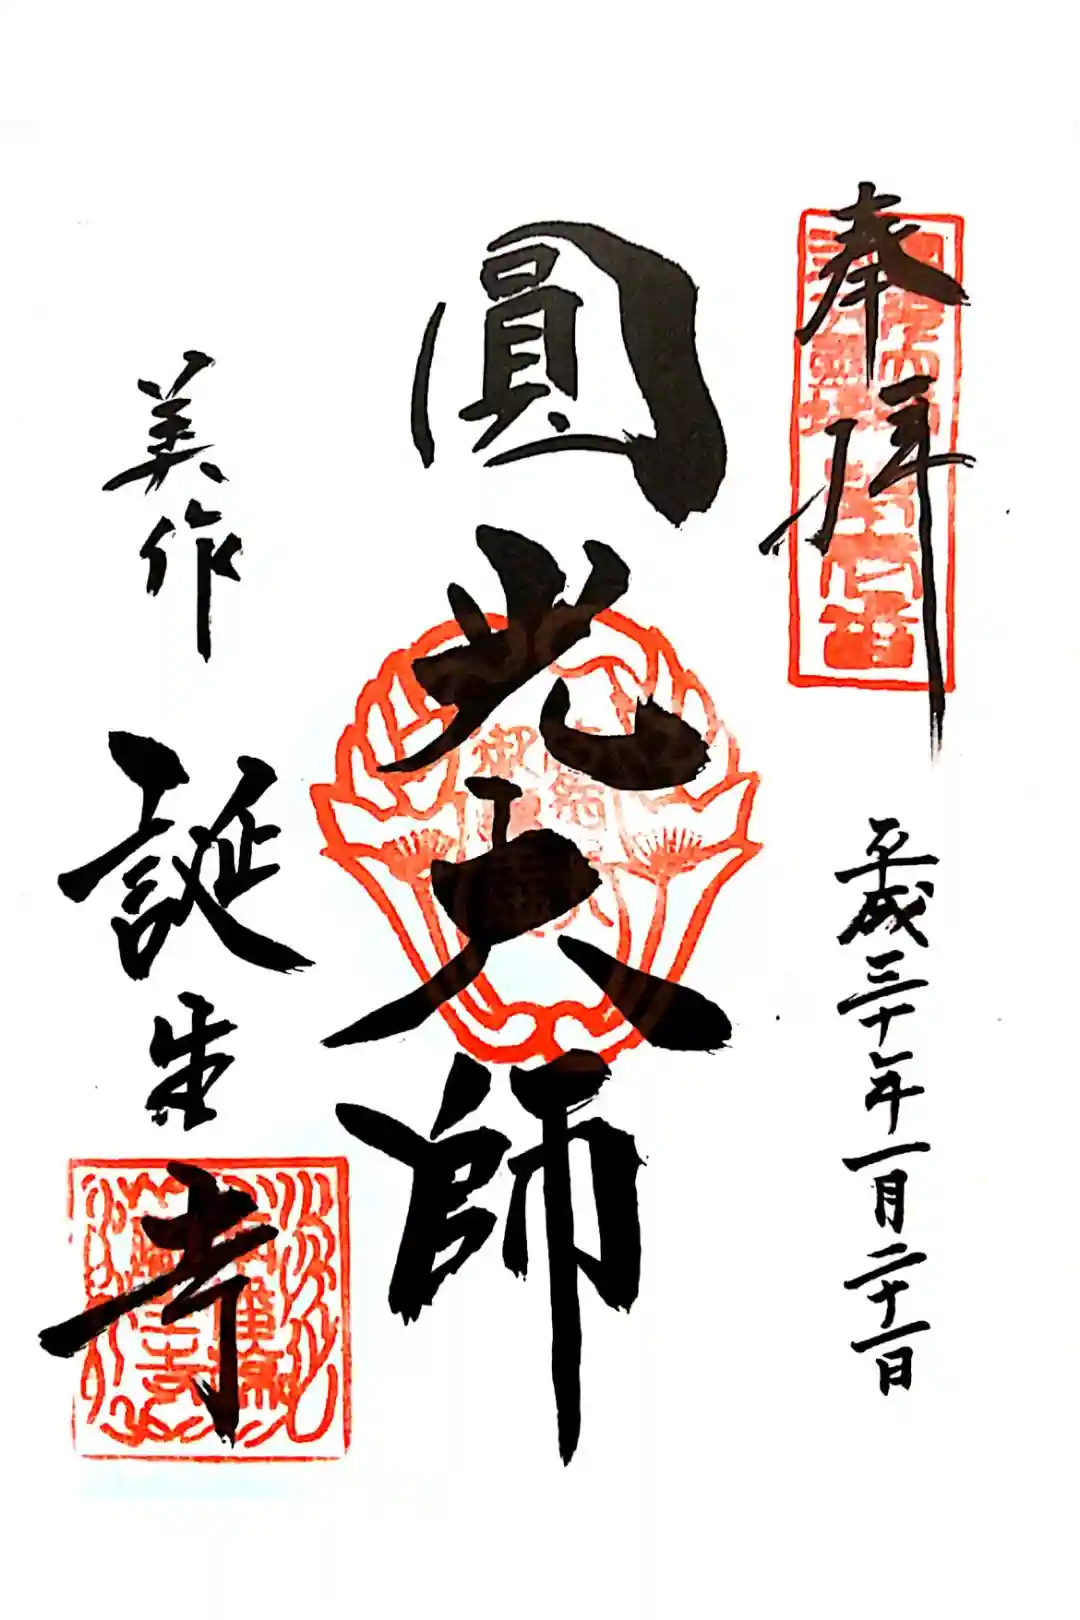 奉拝
平成三十年一月二十一日
圓光大師
美作
誕生寺